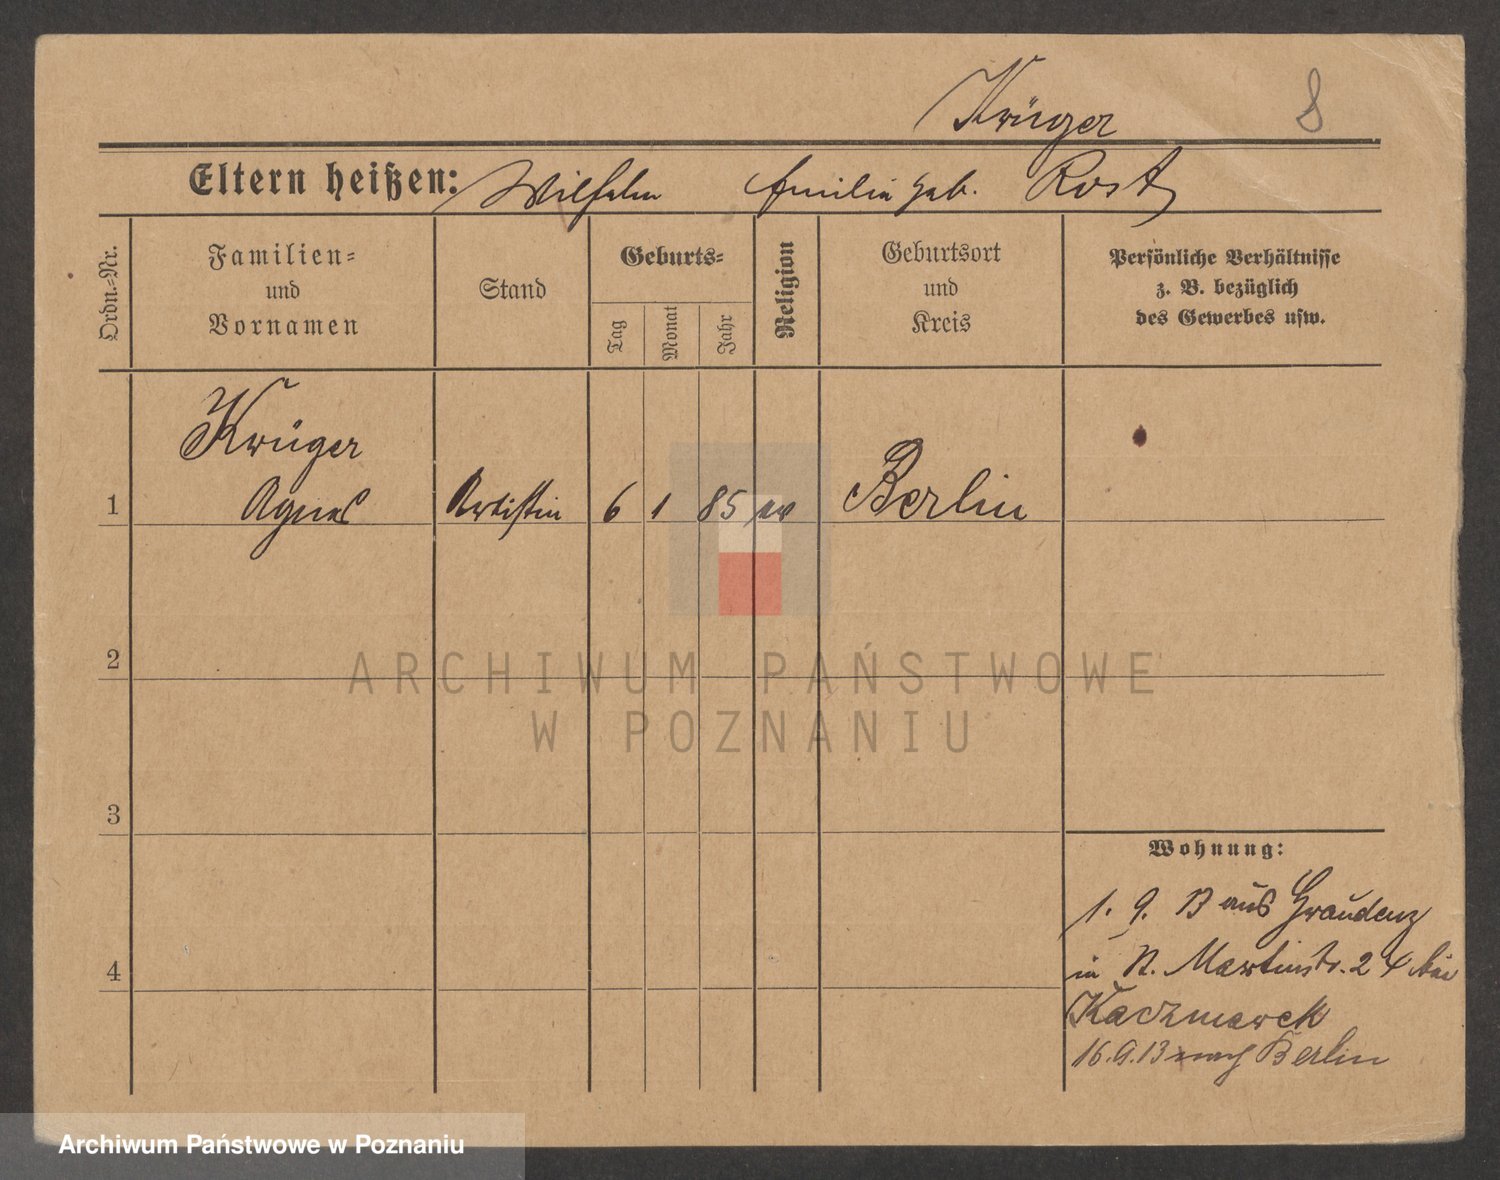 Krüger 8
Eltern heißen: Wilhelm Emilie geb. Rost
Ordn.-Nr.
Familien-
und
Vornamen
Stand
Geburts-
Tag
Monat
Jahr
Religion
Geburtsort
und
Kreis
Persönliche Verhältnisse
z. B. bezüglich
des Gewerbes usw.
Krüger
1 Agnes Artistin 6 1 85 ev Berlin
2
ARCHIWUM PAŃSTWOWE
W POZNANIU
3
Wohnung:
1. 9. 13 aus Graudenz
in Martinstr. 24 bei
4
Kaczmarek
16.9.13 nach Berlin
Archiwum Państwowe w Poznaniu